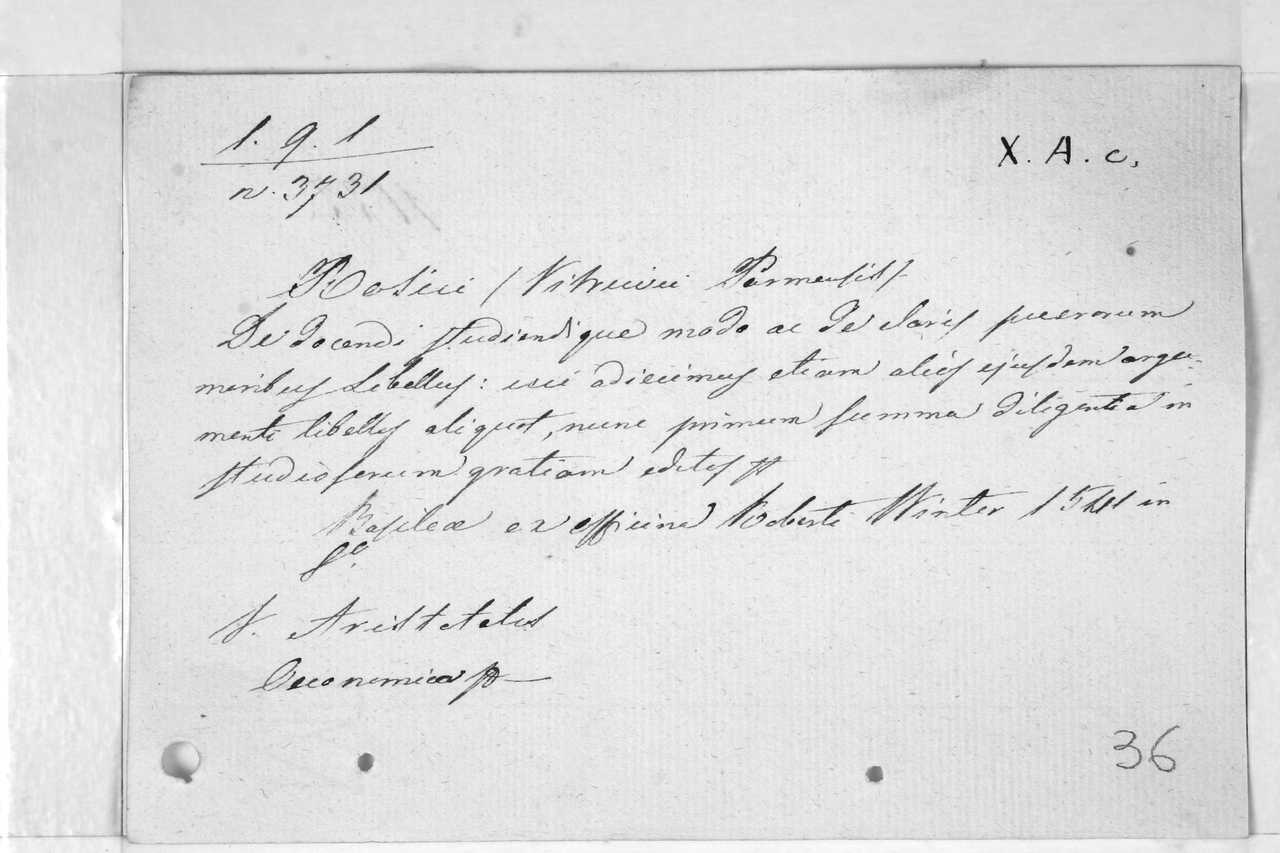 1. 9. 1
n. 3731
X. A. c.
Rosici / Vitruvii Parmensis /
De docendi studiendique modo ac de claris puerorum
moribus Libellus: cui adiecimus etiam alios ejusdem argu-
menti libellos aliquot, nunc primum summa diligentia in
studiosorum gratiam editos
Basileæ ex officina Roberti Winter 1541 in
8º.
V. Aristoteles
Oeconomica
36